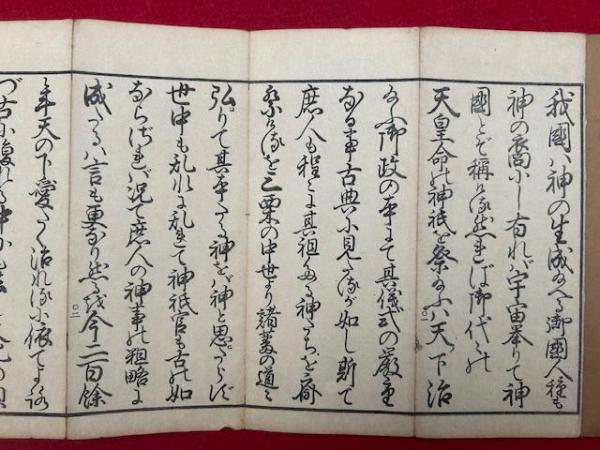 我國ハ神の生成なへる御國人種も
神の裔小し有れバ宇宙挙りて神
國とぞ称ける然れば御代々の
天皇命の神祇を祭給ふハ天下治
給ふ御政の本にて其儀式の嚴重
なる事古典小見へたるが如し斯て
庶人も程々に其祖ある神たちを齋
祭ける を三栗の中世より諸蕃の道々
弘りて其本たる神をバ神と思たらず
世中も乱れに乱れて神祇官も古の如
ならざれば況て庶人の神事の粗略に
成たるハ言も更なり然るを今二百餘
年天の下愛たく治れる小依てよろ
づ古小復れる中か